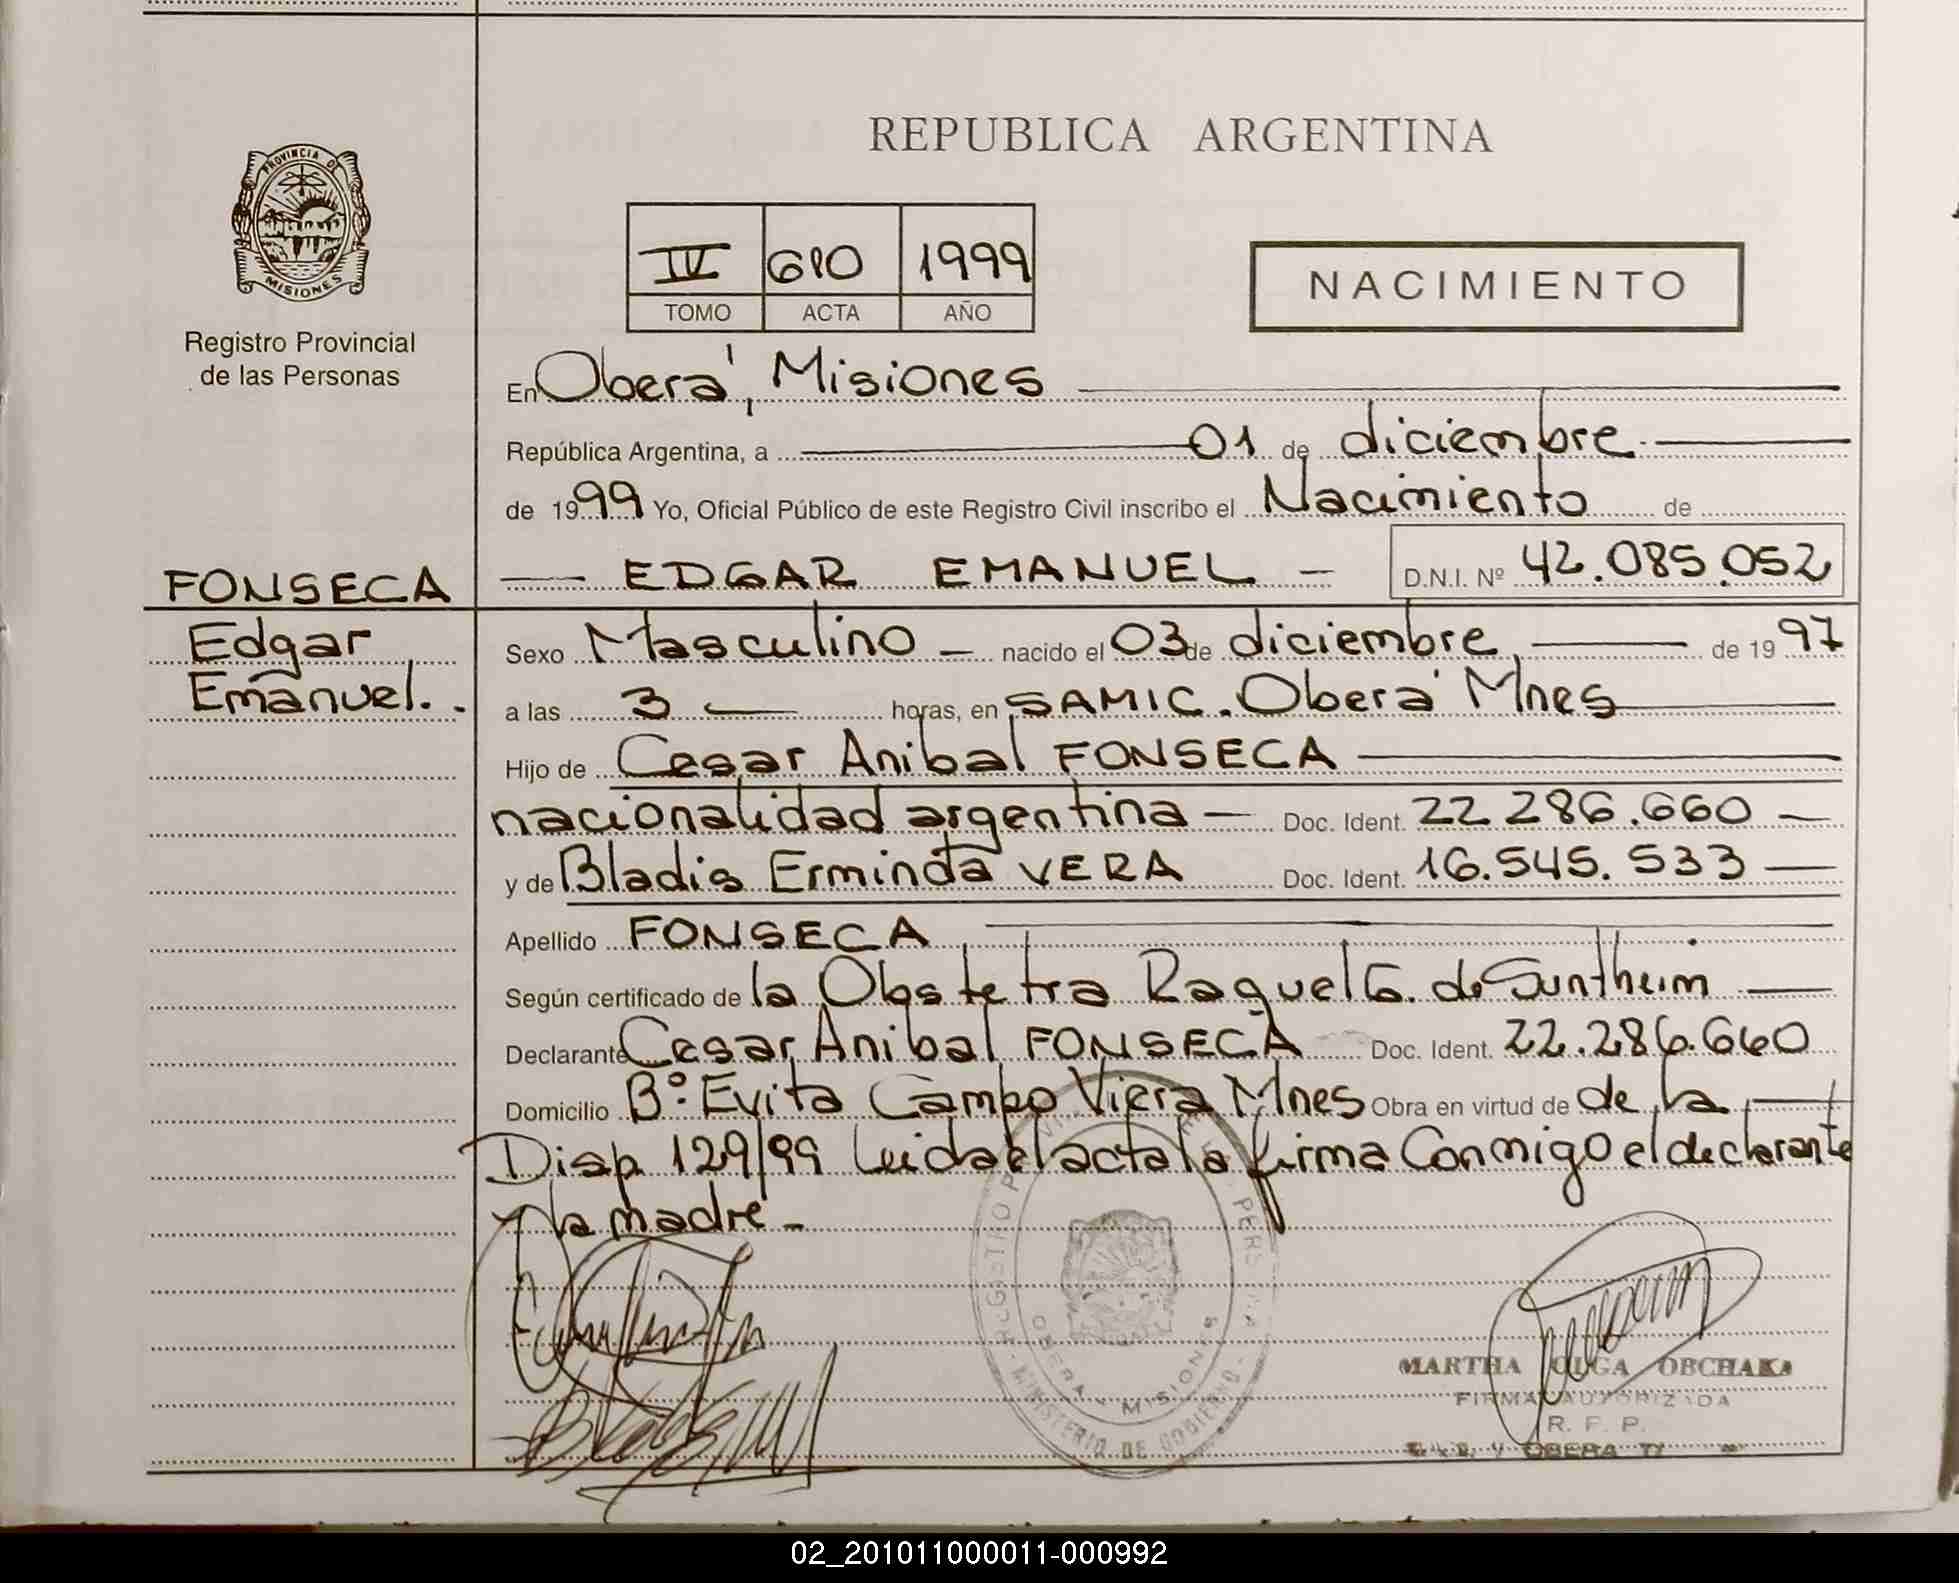 REPUBLICA ARGENTINA
PROVINCIA DE
MISIONES
Registro Provincial
de las Personas
IV 610 1999
TOMO ACTA AÑO
NACIMIENTO
En Oberá, Misiones
República Argentina, a 01 de diciembre
de 1999 Yo, Oficial Público de este Registro Civil inscribo el Nacimiento de
FONSECA
EDGAR EMANUEL D.N.I. Nº 42.085.052
Edgar
Emanuel.
Sexo Masculino nacido el 03 de diciembre de 1997
a las 3 horas, en SAMIC. Oberá Mnes
Hijo de Cesar Anibal FONSECA
nacionalidad argentina Doc. Ident. 22.286.660
y de Bladis Erminda VERA Doc. Ident. 16.545.533
Apellido FONSECA
Según certificado de la Obstetra Raquel G. de Suntheim
Declarante Cesar Anibal FONSECA Doc. Ident. 22.286.660
Domicilio Bº: Evita Campo Viera Mnes Obra en virtud de de la
Disp. 129/99 Leida el acta la firma Conmigo el declarante
y la madre
REGISTRO
OBERA - MISIONES
MINISTERIO DE GOBIERNO
MARTHA OLGA OBCHAKA
FIRMA AUTORIZADA
R. F. P.
02_201011000011-000992